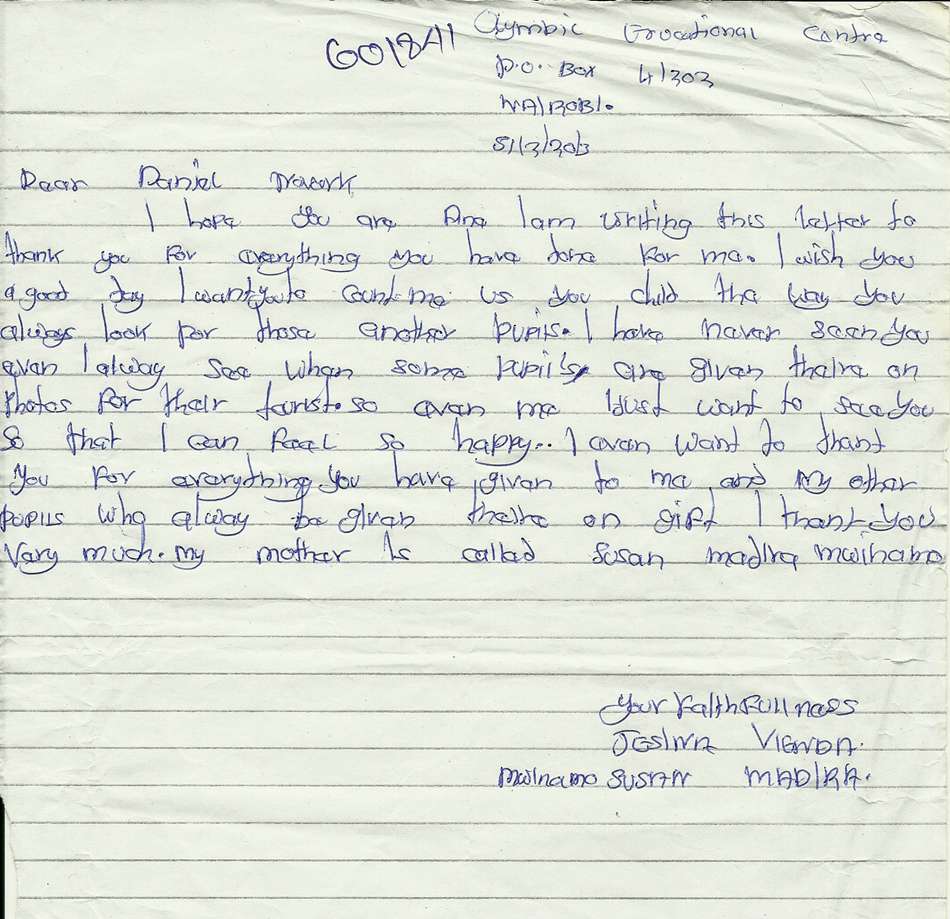 GO1841
Olymbic Grocational Centre
P.O. Box 41303
NAIROBI.
Dear Daniel
I hope you are fine I am writing this letter to
thank you for everything you have done for me. I wish you
a good day I want you to count me us you child the way you
always look for those another pupils. I have never seen you
even I alway see when some pupils are given theire on
Photos for their tourist. so even me I dust want to see you
So that I can feel so happy.. I even want to thant
you for everything you have given to me and my other
pupils who alway be given theire on gift I thank you
Very much. my mother is called Susan madira mwinamo
Your FaithFullness
VIENDA.
mwinamo SUSAN MADIRA.